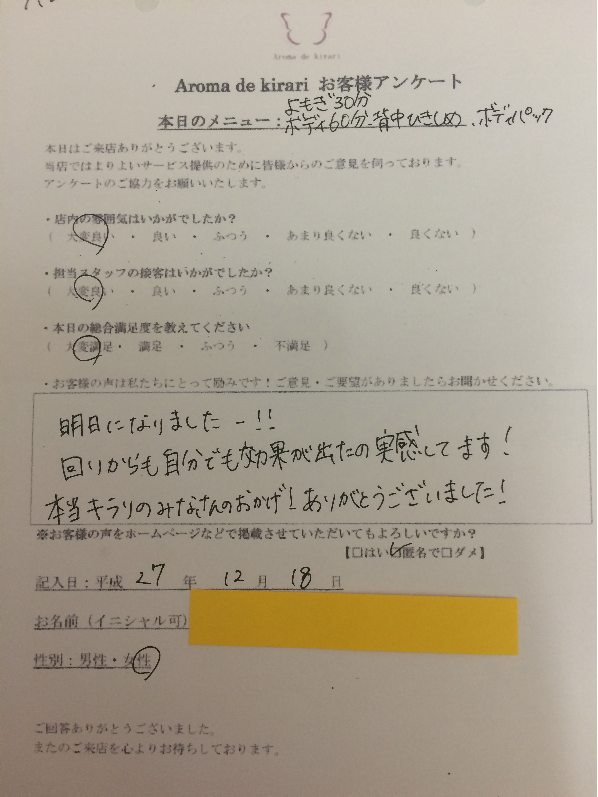 Aroma de kirari
Aroma de kirari お客様アンケート
よもぎ30分
本日のメニュー：ボディ60分、背中ひきしめ、ボディパック
本日はご来店ありがとうございます。
当店ではよりよいサービス提供のために皆様からのご意見を伺っております。
アンケートのご協力をお願いいたします。
・店内の雰囲気はいかがでしたか？
（ 大変良い ・ 良い ・ ふつう ・ あまり良くない ・ 良くない ）
・担当スタッフの接客はいかがでしたか？
（ 大変良い ・ 良い ・ ふつう ・ あまり良くない ・ 良くない ）
・本日の総合満足度を教えてください
（ 大変満足・ 満足 ・ ふつう ・ 不満足 ）
・お客様の声は私たちにとって励みです！ご意見・ご要望がありましたらお聞かせください。
明日になりましたー!!
回りからも自分でも効果が出たの実感してます！
本当キラリのみなさんのおかげ！ありがとうございました！
※お客様の声をホームページなどで掲載させていただいてもよろしいですか？
【□はい☑匿名で□ダメ】
記入日：平成 27 年 12 月 18 日
お名前（イニシャル可）
性別：男性・女性
ご回答ありがとうございました。
またのご来店を心よりお待ちしております。